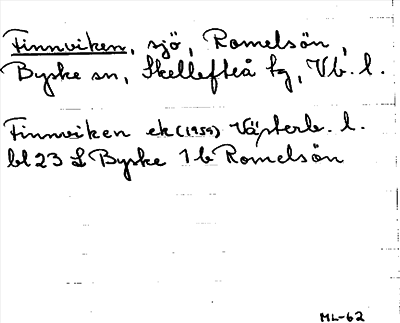 Finnviken, sjö, Romelsön,
Byske sn, Skellefteå tg, Vb. l.
Finnviken ek (1959) Västerb. l.
bl 23 S Byske 1 b Romelsön
ML-62